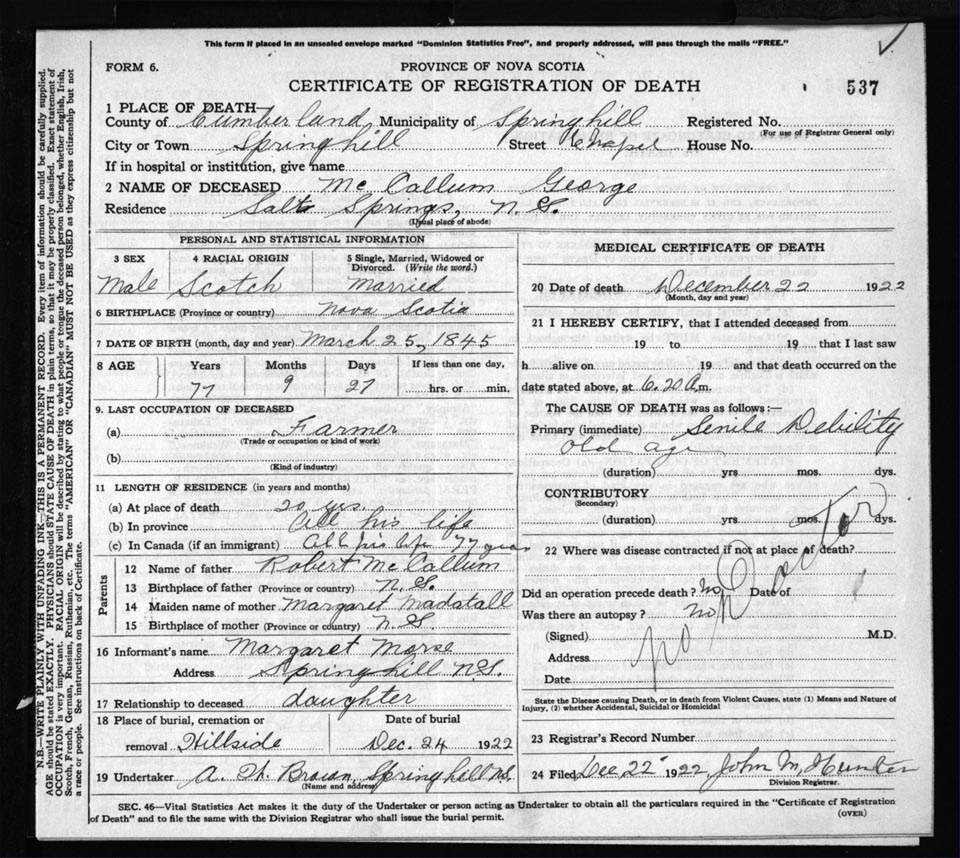 This form if placed in an unsealed envelope marked "Dominion Statistics Free", and properly addressed, will pass through the mails "FREE."
FORM 6.
PROVINCE OF NOVA SCOTIA
CERTIFICATE OF REGISTRATION OF DEATH
537
1 PLACE OF DEATH—
County of Cumberland, Municipality of Springhill Registered No.
(For use of Registrar General only)
City or Town Springhill Street Chapel House No.
If in hospital or institution, give name
2 NAME OF DECEASED McCallum George
Residence Salt Springs, N.S.
(Usual place of abode)
PERSONAL AND STATISTICAL INFORMATION
3 SEX 4 RACIAL ORIGIN 5 Single, Married, Widowed or Divorced. (Write the word.)
Male Scotch Married
6 BIRTHPLACE (Province or country) Nova Scotia
7 DATE OF BIRTH (month, day and year) March 25, 1845
8 AGE Years Months Days If less than one day,
77 9 27 hrs. or min.
9. LAST OCCUPATION OF DECEASED
(a) Farmer
(Trade or occupation or kind of work)
(b)
(Kind of industry)
11 LENGTH OF RESIDENCE (in years and months)
(a) At place of death 20 yrs.
(b) In province All his life
(c) In Canada (if an immigrant) All his life 77 years
Parents
12 Name of father Robert McCallum
13 Birthplace of father (Province or country) N.S.
14 Maiden name of mother Margaret
15 Birthplace of mother (Province or country) N.S.
16 Informant's name Margaret Morse
Address Springhill NS.
17 Relationship to deceased daughter
18 Place of burial, cremation or Date of burial
removal Hillside Dec. 24 1922
19 Undertaker A. Th. Brown, Springhill NS.
(Name and address)
MEDICAL CERTIFICATE OF DEATH
20 Date of death December 22 1922
(Month, day and year)
21 I HEREBY CERTIFY, that I attended deceased from
19 to 19 that I last saw
h alive on 19 and that death occurred on the
date stated above, at 6.20 A.m.
The CAUSE OF DEATH was as follows:—
Primary (immediate) Senile Debility
Old age
(duration) yrs. mos. dys.
CONTRIBUTORY
(Secondary)
(duration) yrs. mos. dys.
22 Where was disease contracted if not at place of death?
Did an operation precede death? No Date of
Was there an autopsy? no
(Signed) M.D.
Address
Date
no Doctor
State the Disease causing Death, or in death from Violent Causes, state (1) Means and Nature of
Injury, (2) whether Accidental, Suicidal or Homicidal
23 Registrar's Record Number
24 Filed Dec 22 1922, John M, Hunter
Division Registrar.
SEC. 46—Vital Statistics Act makes it the duty of the Undertaker or person acting as Undertaker to obtain all the particulars required in the "Certificate of Registration
of Death" and to file the same with the Division Registrar who shall issue the burial permit.
(OVER)
N.B.—WRITE PLAINLY WITH UNFADING INK—THIS IS A PERMANENT RECORD. Every item of information should be carefully supplied.
AGE should be stated EXACTLY. PHYSICIANS should STATE CAUSE OF DEATH in plain terms, so that it may be properly classified. Exact statement of
OCCUPATION is very important. RACIAL ORIGIN will be described by stating to what people or tongue the deceased person belonged, whether English, Irish,
Scotch, French, German, Russian, Ruthenian, etc. The terms "AMERICAN" OR "CANADIAN" MUST NOT BE USED as they express citizenship but not
a race or people. See instructions on back of Certificate.